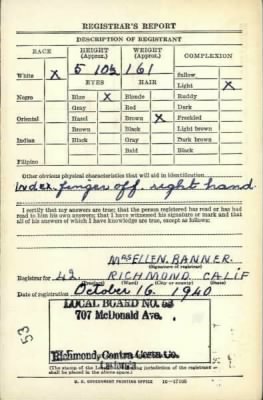 REGISTRAR'S REPORT
DESCRIPTION OF REGISTRANT
RACE HEIGHT (Approx.) WEIGHT (Approx.) COMPLEXION
White X 5 10½ 161 Sallow
EYES HAIR Light X
Negro Blue X Blonde Ruddy
Gray Red Dark
Oriental Hazel Brown X Freckled
Brown Black Light brown
Indian Black Gray Dark brown
Bald Black
Filipino
Other obvious physical characteristics that will aid in identification
Index finger off right hand
I certify that my answers are true; that the person registered has read or has had
read to him his own answers; that I have witnessed his signature or mark and that
all of his answers of which I have knowledge are true, except as follows:
MRS ELLEN BANNER
(Signature of registrar)
Registrar for 42 RICHMOND CALIF
(Precinct) (Ward) (City or county) (State)
Date of registration October 16 1940
LOCAL BOARD NO. 53
707 McDonald Ave.
Richmond, Contra Costa Co.
California
53
(The stamp of the Local Board having jurisdiction of the registrant
shall be placed in the above space.)
U. S. GOVERNMENT PRINTING OFFICE 16-17105